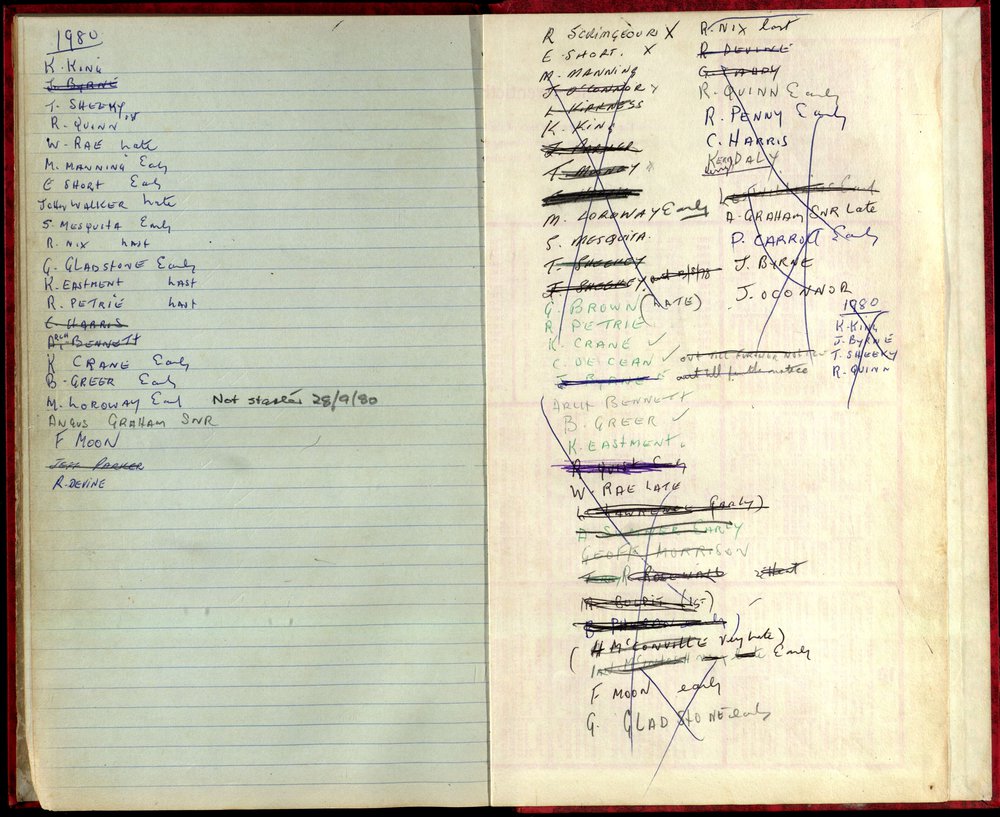 1980
K. KING
J. BYRNE
T. SHEEKY
R. QUINN
W. RAE Late
M. MANNING Early
E SHORT Early
JOHN WALKER Late
S. MESQUITA Early
R. NIX LAST
G. GLADSTONE Early
K. EASTMENT LAST
R. PETRIE LAST
C HARRIS
ARCH BENNETT
K CRANE Early
B. GREER Early
M. LORDWAY Earl Not started 28/9/80
ANGUS GRAHAM SNR
F MOON
JEFF PARKER
R. DEVINE
R SCRIMGEOUR X
E. SHORT. X
M. MANNING
J O'CONNOR Y
L KIRKNESS
K. KING
J. PARKER
T. MANDY
M. LORDWAY Early
S. MESQUITA.
T. SHEEKEY
T. SHEEKEY
G. BROWN (LATE)
R PETRIE
K CRANE ✓
C. DE CEAN ✓ OUT TILL FURTHER NOTICE
out till further notice
ARCH BENNETT
B. GREER ✓
K. EASTMENT.
R. QUINN Early
W. RAE LATE
LAWRENCE Early)
EARLY
GEOFF MORRISON
(1st)
(H McCONVILLE Very Late)
Early
F MOON early
G. GLADSTONE early
R. NIX last
R DEVINE
G. BRADY
R. QUINN Early
R. PENNY Early
C. HARRIS
KERRY DALY
A. GRAHAM SNR Late
D. CARROLL Early
J. BYRNE
J. OCONNOR
1980
K. KING
J. BYRNE
T. SHEEKY
R. QUINN